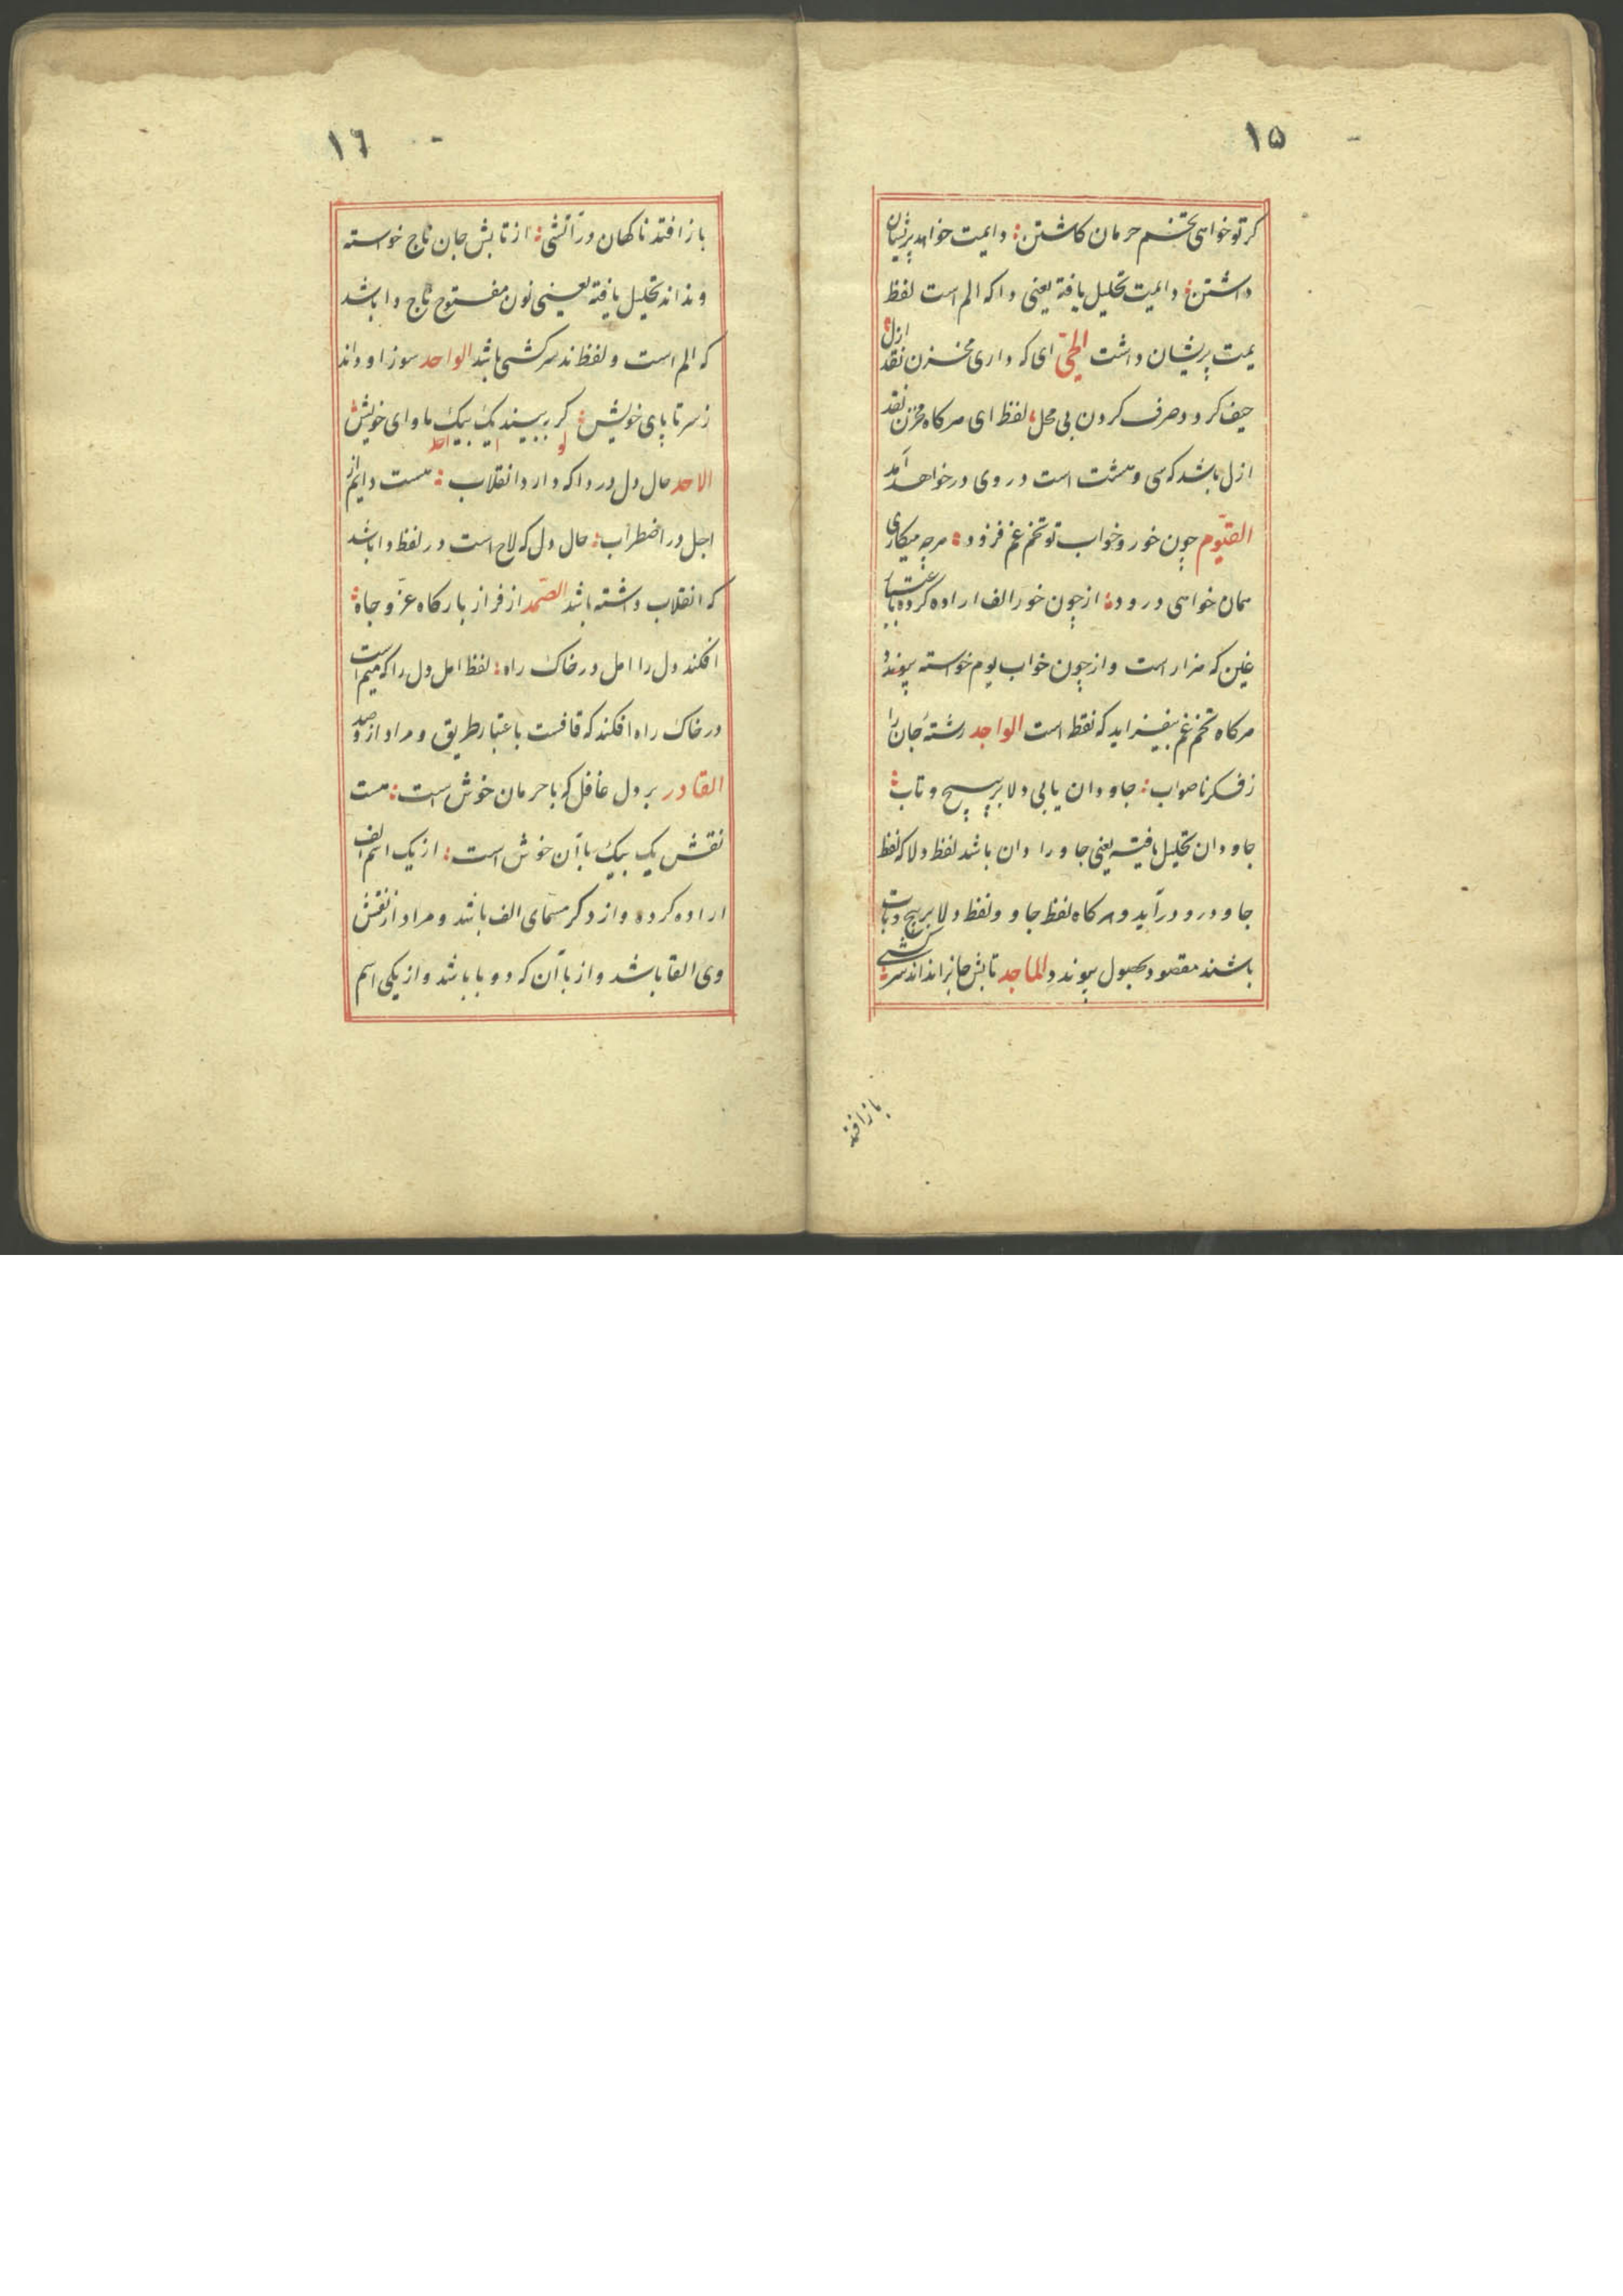 ۱۵
کر تو خواهی تخم حرمان کاشتن دایمت خواهد پریشان
داشتن دایمت تحلیل یافته یعنی دا که الم است لفظ
یمت پریشان داشت الحیّ ای که داری مخزن نقد ازل
حیف کردد صرف کردن بی محل لفظ ای هرکاه مخزن نقد
ازل باشد که سی و هشت است در وی در خواهد آمد
القیّوم چون خور و خواب تو تخم غم فزود هرچه میکاری
همان خواهی درود از چون خور الف اراده کرده باعتبار
غین که هزار است و از چون خواب یوم خواسته پیوندد
هرکاه تخم غم بیفزاید که نقط است الواجد رشتهٔ جان را
ز فکر ناصواب جاودان یابی دلا بر پیچ و تاب
جاودان تحلیل یافته یعنی جاو را دان باشد لفظ دلا که لفظ
جاو درو درآید و هرکاه لفظ جاو و لفظ دلا بر پیچ و تاب
باشند مقصود بحصول پیوندد الماجد تابش جانرا نداند سرکشی
باز افتد
۱٦
باز افتد ناکهان در آتشی از تابش جان تاج خواسته
و نداند تحلیل یافته یعنی نون مفتوح تاج دا باشد
که الم است و لفظ ند سرکشی باشد الواحد سوز او داند
ز سر تا پای خویش کر ببیند یک بیک ماوای خویش
لو ا احد
الاحد حال دل در دا که دارد انقلاب هست دایم از
اجل در اضطراب حال دل که لاح است در لفظ دا باشد
که انقلاب داشته باشد الصّمد از فراز بارکاه عزّ و جاه
افکند دل را امل در خاک راه لفظ امل دل را که میم است
در خاک راه افکند که قافست باعتبار طریق و مراد ازو صد
القادر بر دل غافل که با حرمان خوش است هست
نقش یک بیک با آن خوش است از یک اسم الف
اراده کرده و از دکر مسمّای الف باشد و مراد از نقش
وی القا باشد و از با آن که دو با باشد و از یکی اسم